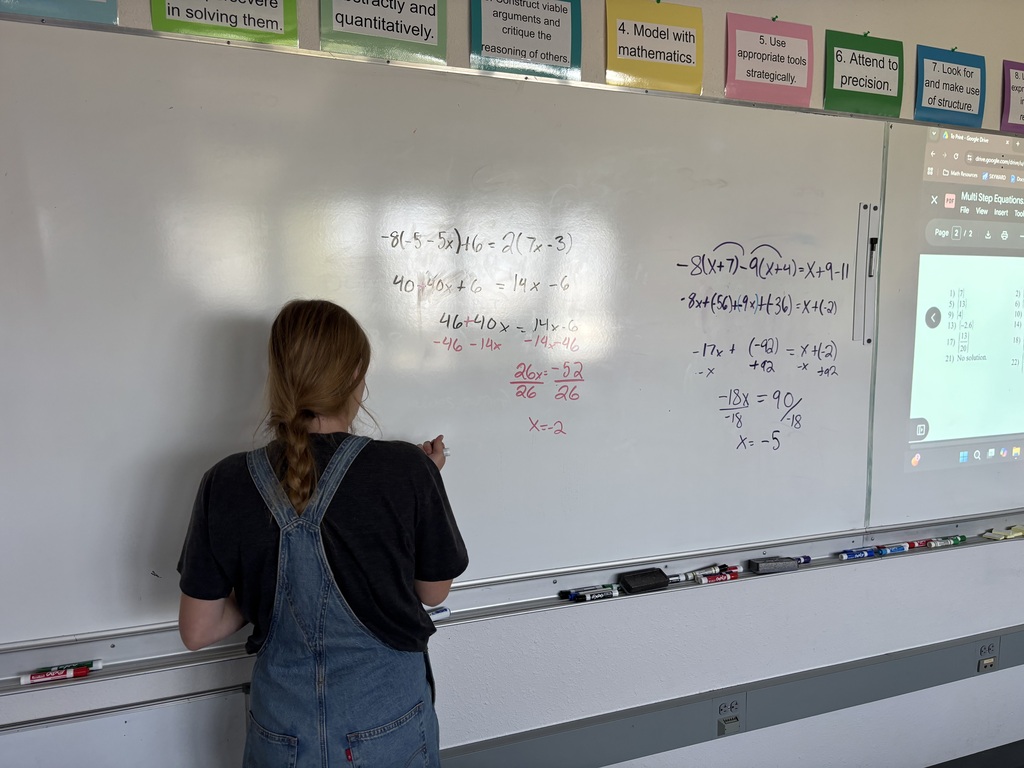 in solving them.
quantitatively.
Construct viable
arguments and
critique the
reasoning of others.
4. Model with
mathematics.
5. Use
appropriate tools
strategically.
6. Attend to
precision.
7. Look for
and make use
of structure.
-8(-5-5x)+6 = 2(7x-3)
40+40x+6 = 14x-6
46+40x = 14x-6
-46 -14x -14x-46
26x = -52
26 26
x=-2
-8(x+7)-9(x+4)=x+9-11
-8x+(-56)+-9x+(-36)=x+(-2)
-17x + (-92) = x+(-2)
-x +92 -x +92
-18x = 90/
-18 -18
x = -5
To Print - Google Drive
drive.google.com/drive/u
Math Resources SKYWARD
PDF Multi Step Equations.
File View Insert
Page 2 / 2
1) {7}
5) {13}
9) {4}
13) {-2.6}
21) No solution.
2)
6)
10)
14)
18)
22)